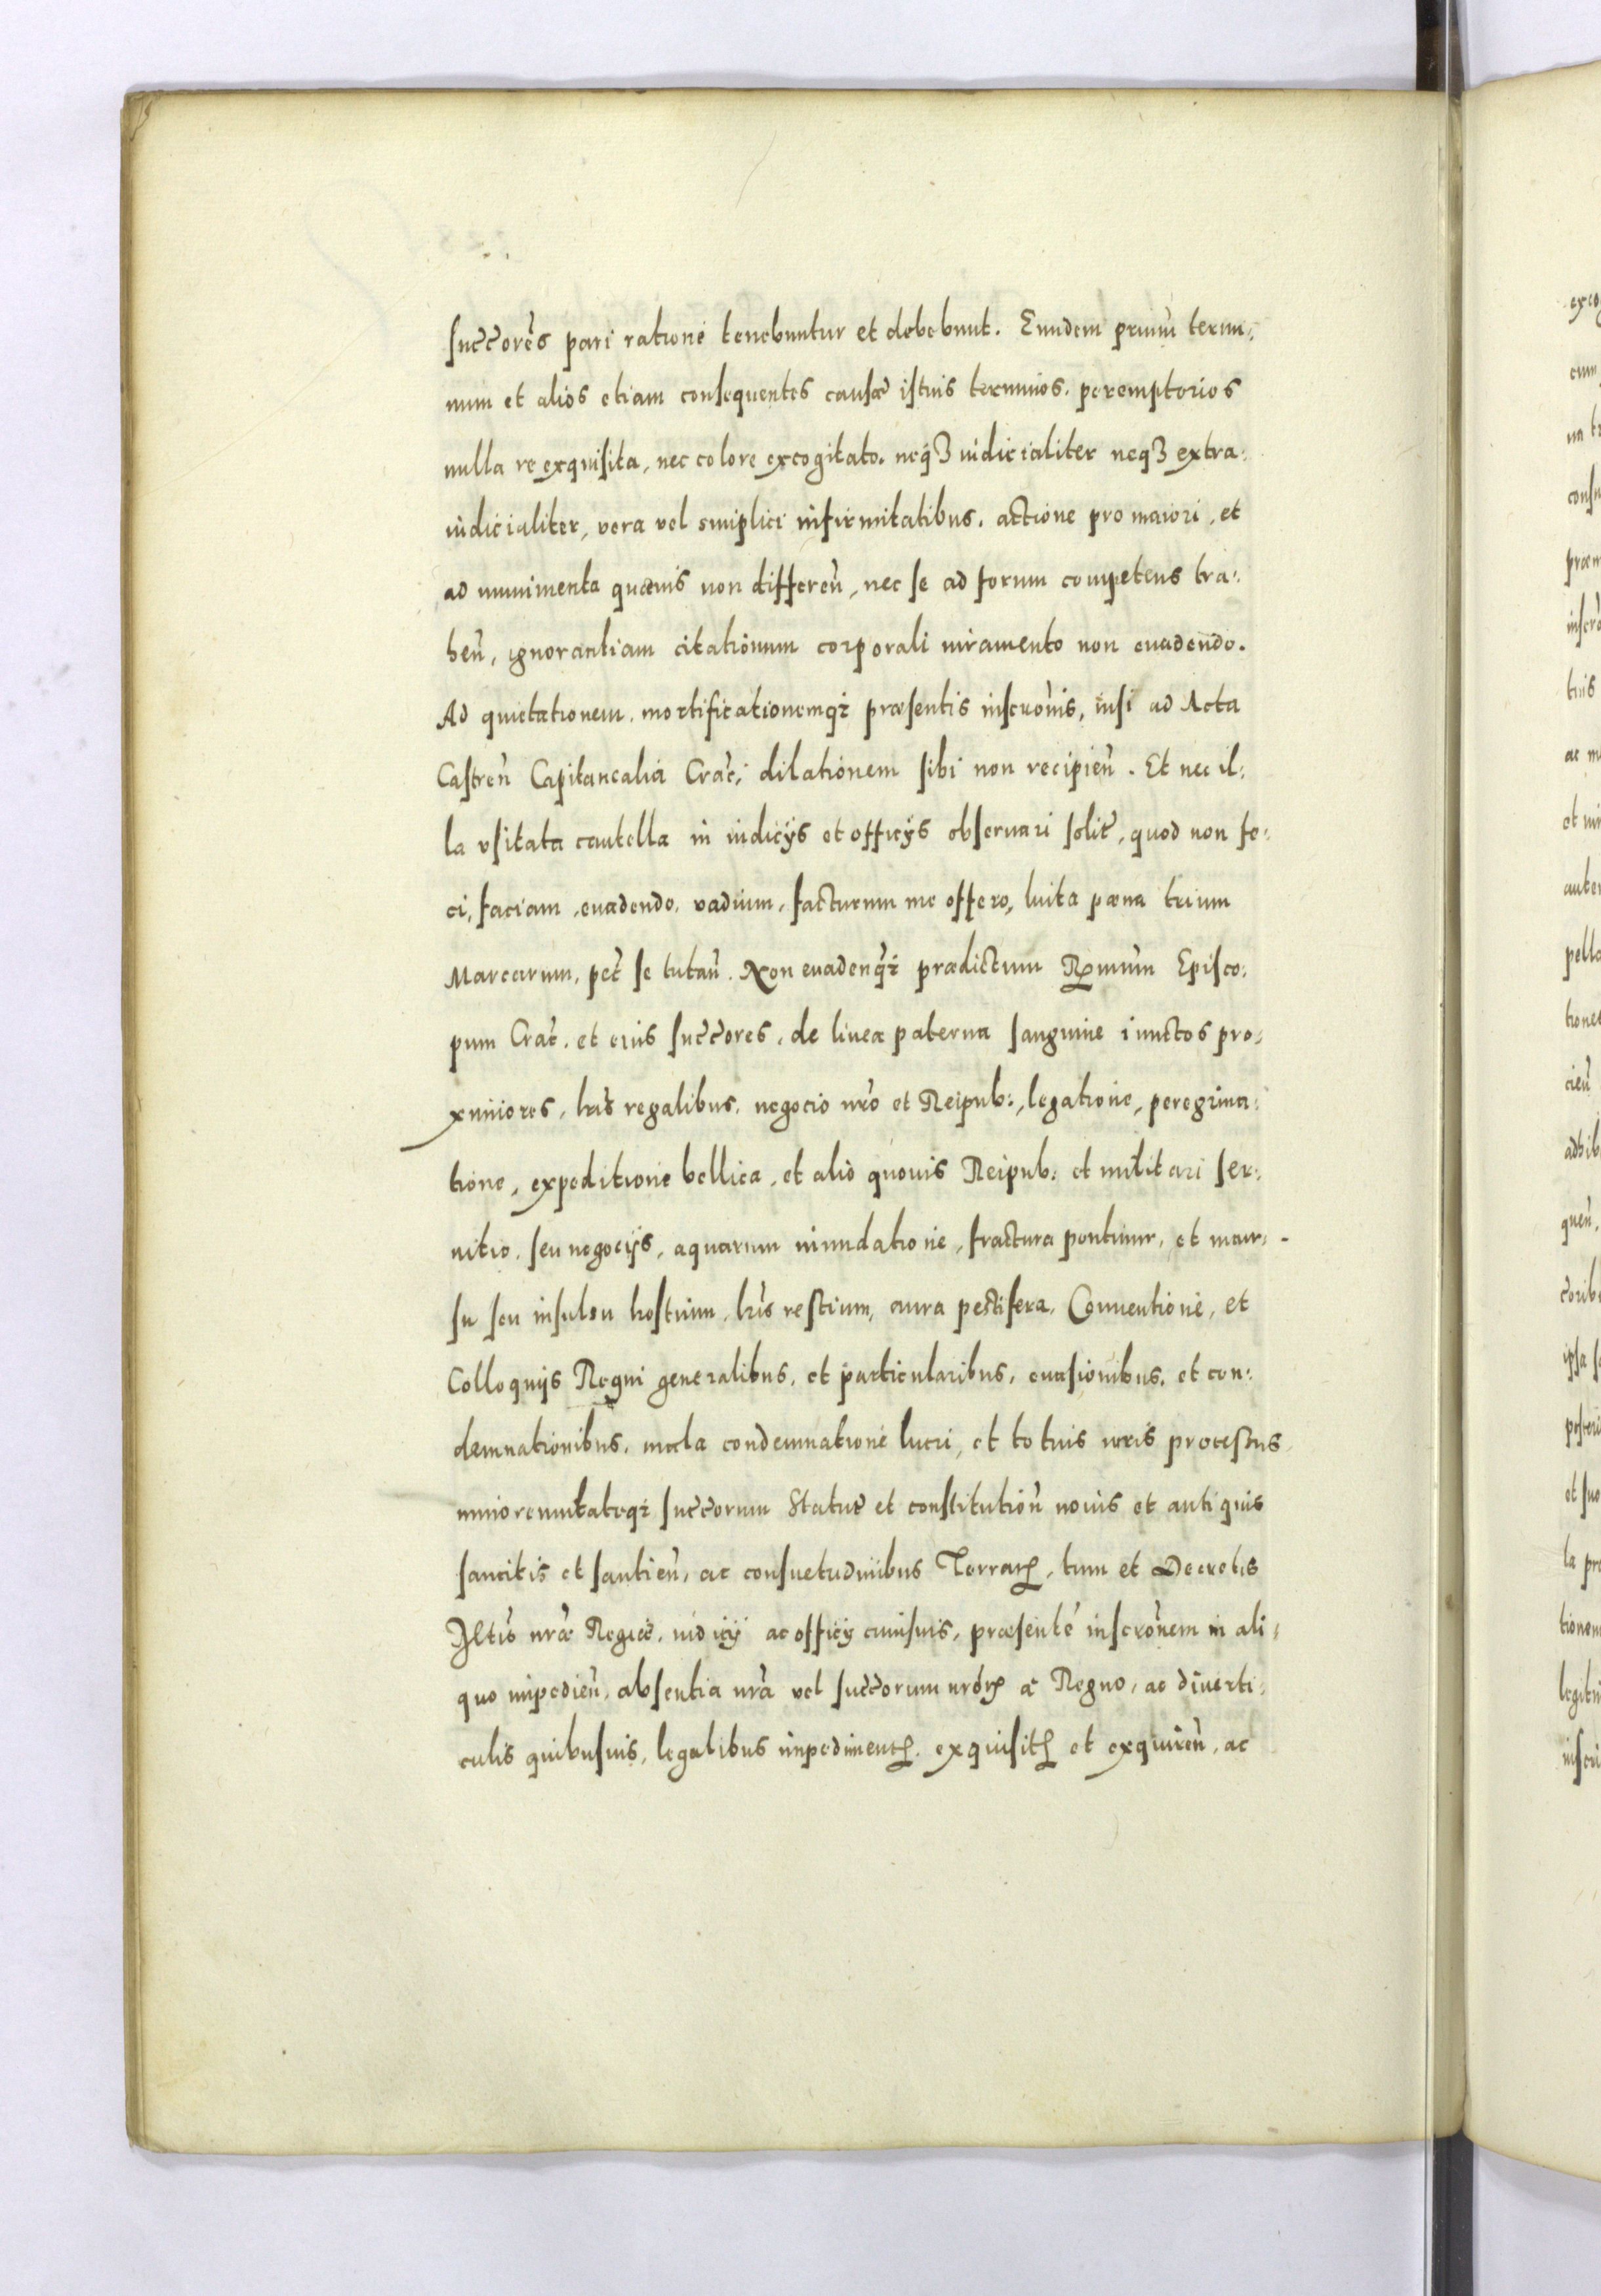 succ̃ores pari ratione tenebuntur et debebunt. Eundem primũ termi:
num et alios etiam consequentes causæ istius terminos. peremptorios
nulla re exquisita, nec colore excogitato. neq3 iudicialiter neq3 extra:
iudicialiter, vera vel simplici infirmitatibus. actione pro maiori, et
ad munimenta quævis non differeñ, nec se ad forum competens tra:
heñ, ignorantiam citationum corporali iuramento non euadendo.
Ad quietationem. mortificationemq3 præsentis inscrõnis, nisi ad Acta
Castreñ Capitanealia Crac̃. dilationem sibi non recipieñ. Et nec il:
la vsitata cautella in iudicijs et officijs obseruari solit̃, quod non fe:
ci, faciam, euadendo. vadium, facturum me offero, luita pæna trium
Marcarum, pet̃ se tutañ. Non euadenq3 prædictum Rx̃mum Episco:
pum Crac̃. et eius succ̃ores, de linea paterna sanguine iunctos pro:
ximiores, lr̃is regalibus. negocio nr̃o et Reipub:, legatione, peregrina:
tione, expeditione bellica, et alio quouis Reipub: et militari ser:
uitio. seu negocijs, aquarum inundatione, fractura pontium, et incur:
su seu insultu hostium, lr̃is restium, aura pestifera. Conuentione, et
Colloquijs Regni generalibus, et particularibus, euasionibus. et con:
demnationibus. mala condemnatione lucri, et totius iuris processus
minorennitateq3 succ̃orum Statut̃ et constitutioñ nouis et antiquis
sancitis et santieñ, ac consuetudinibus Terrarꝝ, tum et Decretis
Mt̃is nr̃æ Regiæ, iudicij ac officij cuiusuis, præsente inscrõnem in ali:
quo impedieñ, absentia nr̃a vel succ̃orum nr̃orꝝ a Regno, ac diuerti:
culis quibusuis, legalibus impediment̃. exquisit̃ et exquireñ, ac